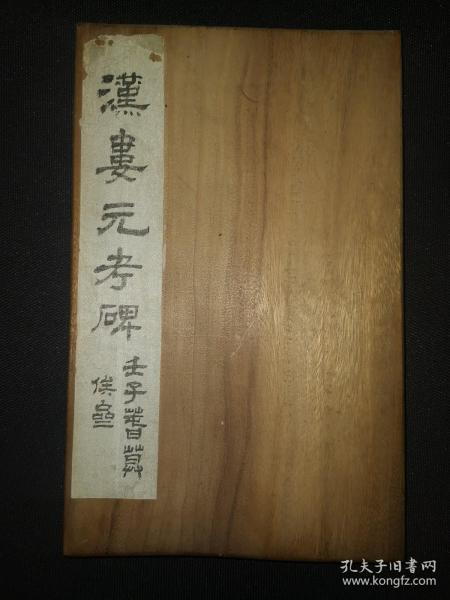 漢婁元考碑
壬子暮
孔夫子旧书网
www.kongfz.com